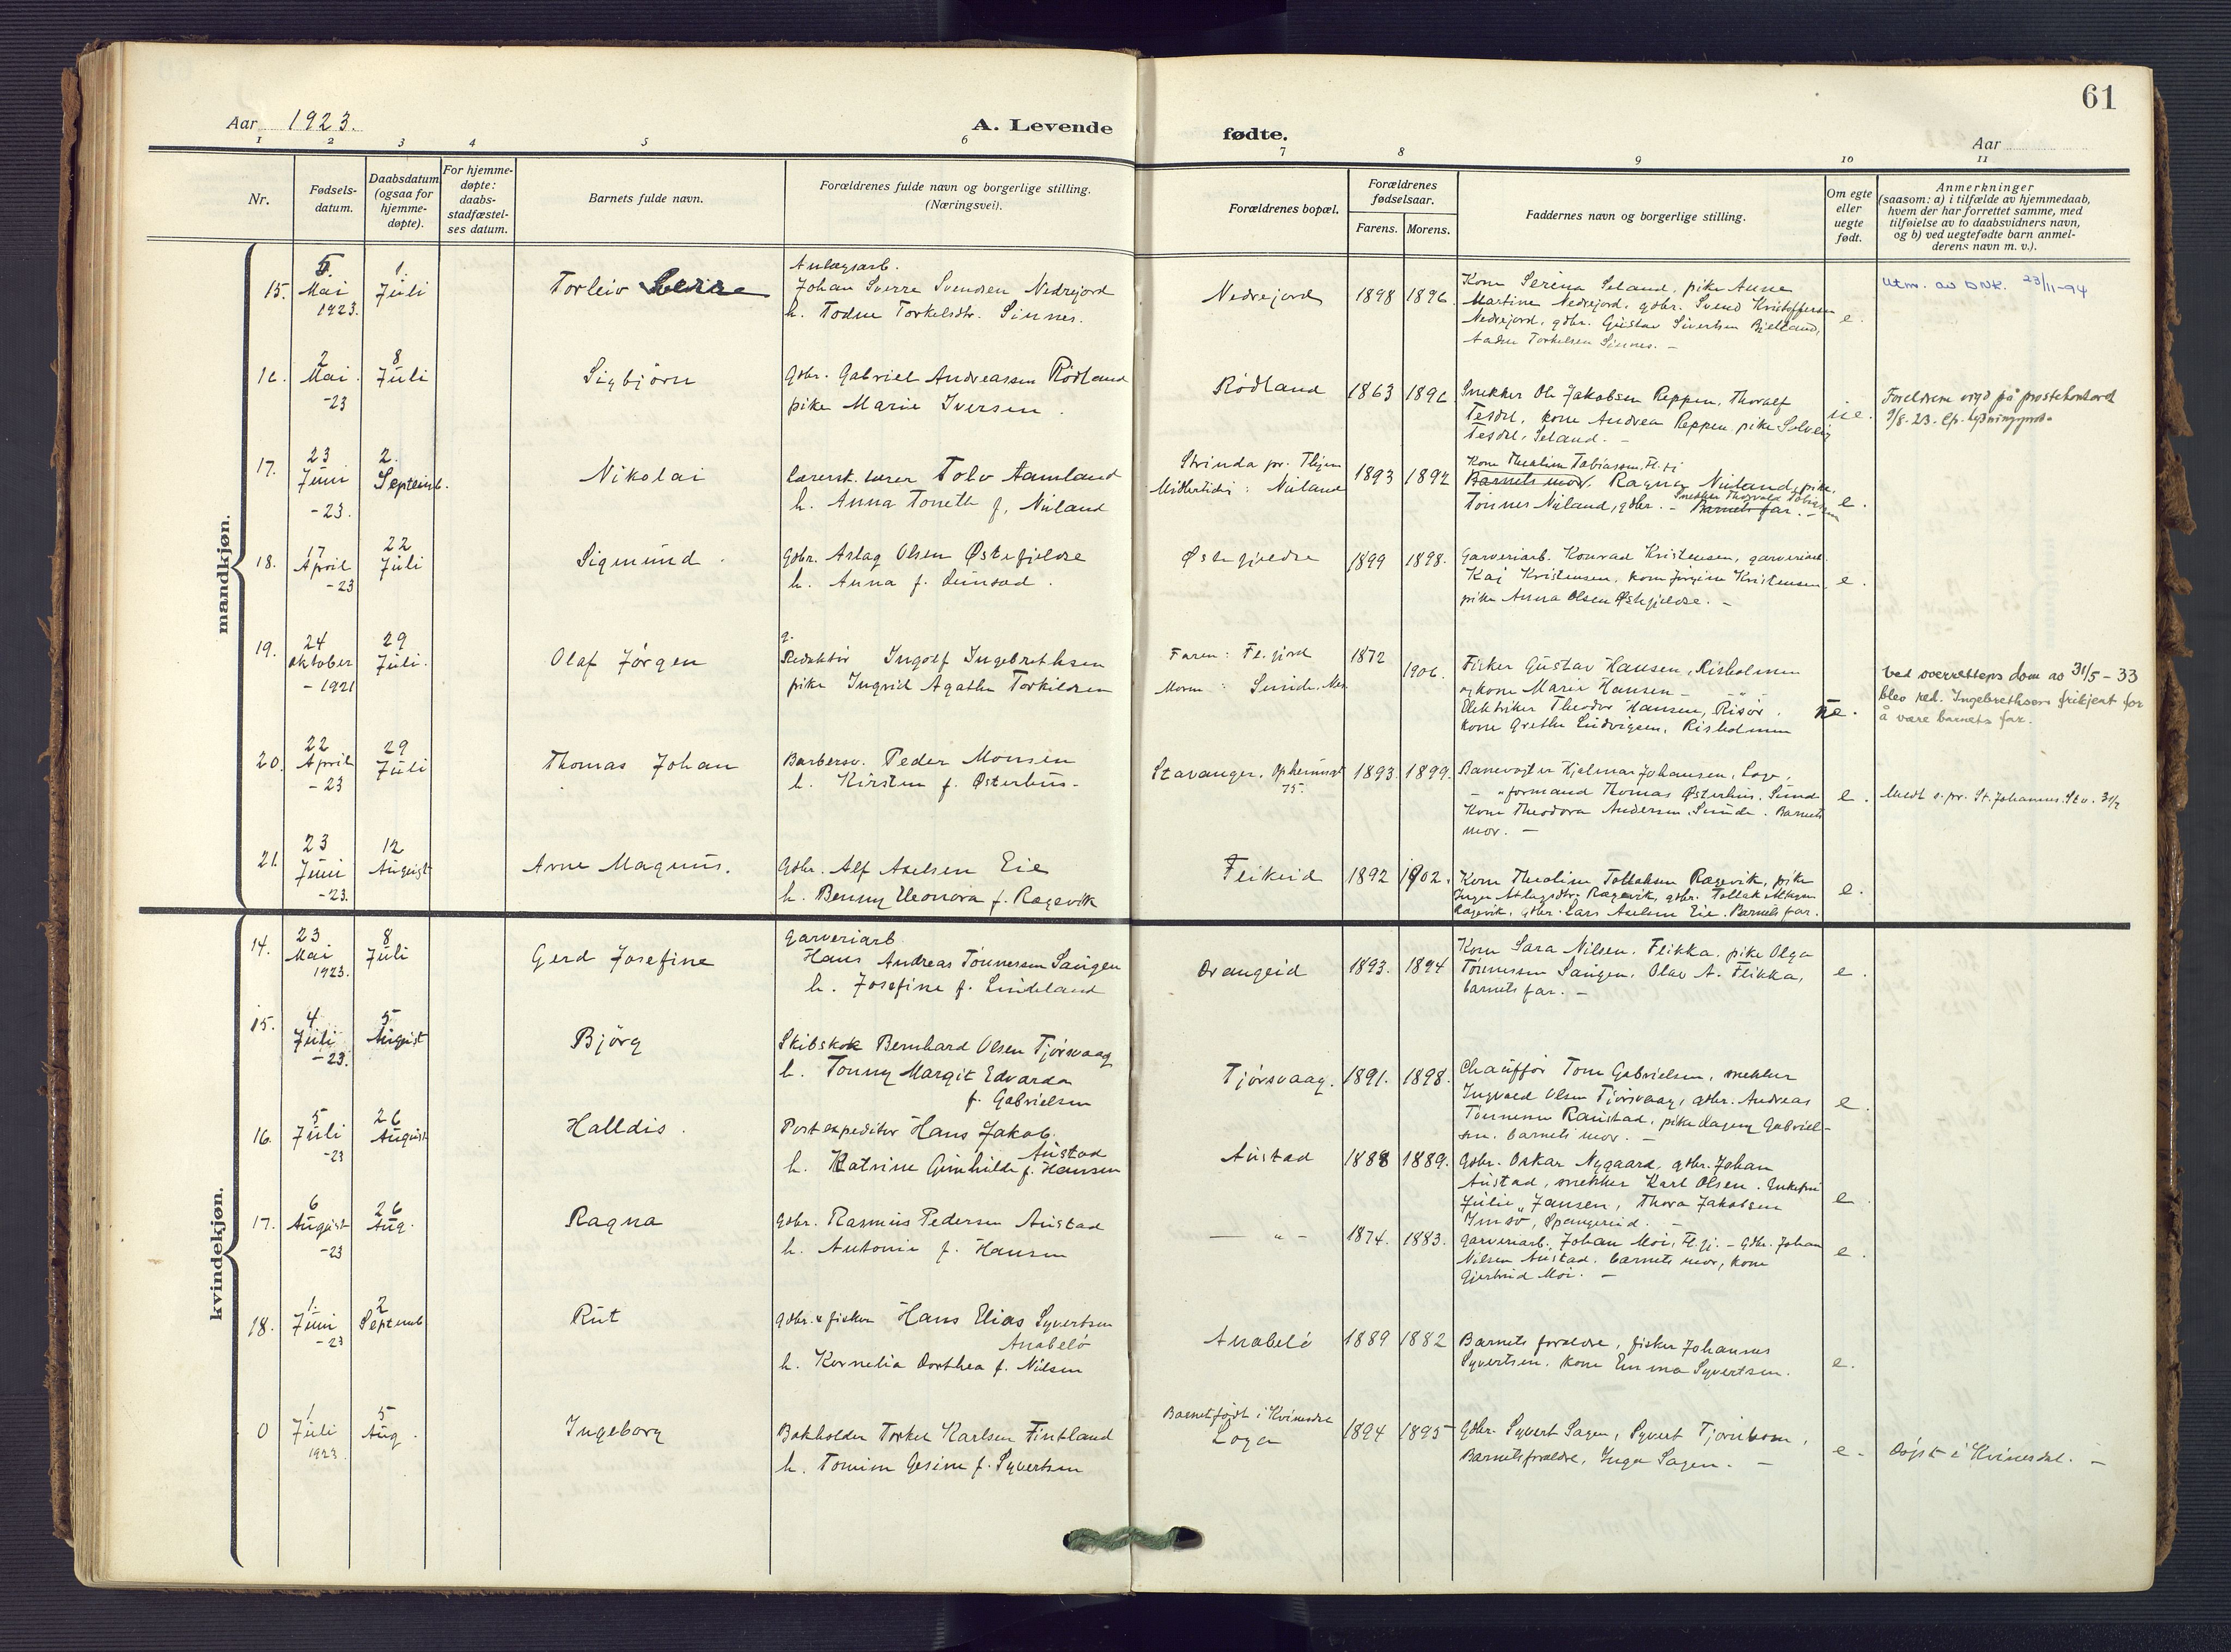 61
Aar 1923.
A. Levende
fødte.
Aar
1 2 3 4 5 6 7 8 9 10 11
Nr.
Fødsels-
datum.
Daabsdatum
(ogsaa for
hjemme-
døpte).
For hjemme-
døpte:
daabs-
stadfæstel-
ses datum.
Barnets fulde navn.
Forældrenes fulde navn og borgerlige stilling.
(Næringsvei).
Forældrenes bopæl.
Forældrenes
fødselsaar.
Farens. Morens.
Faddernes navn og borgerlige stilling.
Om egte
eller
uegte
født.
Anmerkninger
(saasom: a) i tilfælde av hjemmedaab,
hvem der har forrettet samme, med
tilføielse av to daabsvidners navn,
og b) ved uegtefødte barn anmel-
derens navn m. v.).
mandkjøn.
15.
5.
Mai
1923.
1.
Juli
Torleiv Sverre
Anlægsarb.
Johan Sverre Svendsen Nedrejord
h. Todne Torkelsdtr. Sinnes.
Nedrejord
1898 1896
Kone Serina Seland, pike Anne
Martine Nedrejord, gdbr. Svend Kristoffersen
Nedrejord, gdbr. Gustav Sivertsen Bjelland,
Aadne Torkelsen Sinnes. -
e.
utm. av DNK. 23/11-94
16.
2
Mai
-23
8
Juli
Sigbjörn
Gdbr. Gabriel Andreassen Rödland
pike Marie Iversen.
Rödland
1863 1896
Snekker Ole Jakobsen Reppen, Thoralf
Tesdel, kone Andrea Reppen, pike Solveig
Tesdel, Seland. -
ue.
Foreldrene vigd på prostekontoret
9/8-23. Cfr. lysningsprot.
17.
23
Juni
-23.
2.
Septemb.
Nikolai
lærerst. lærer Tolv Aamland
h. Anna Toneth f. Nuland
Strinda pr. Thjem
Midlertidig: Nuland
1893 1892
Kone Thealine Tobiassen, Fl.fj
Barnets mor. Ragna Nuland, pike,
Tönnes Nuland, gdbr. - Snekker Thorvald Tobiassen
Barnets far. -
e.
18.
17
April
-23
22
Juli
Sigmund.
Gdbr. Aslag Olsen Østefjeldre
h. Anna f.
Østefjeldre
1899 1898.
Garveriarb. Konrad Kristensen, garveriarb.
Kaj Kristensen, kone Jörgine Kristensen,
pike Anna Olsen Østefjeldre. -
e.
19.
24
oktober
- 1921
29
Juli.
Olaf Jörgen
Redaktör Ingolf Ingebrethsen
pike Ingrid Agathe Torkildsen
Faren: Fl.fjord
Moren: Sunde, Nes
1872
1906.
Fisker Gustav Hansen, Risholmen
og kone Marie Hansen -
Elektriker Theodor Hansen, Risör.
kone Grethe Ludvigsen, Risholmen
ue.
Ved overretteps dom av 31/5-33
blev red. Ingebrethsen frikjent for
å være barnets far.
20.
22
April
- 23
29
Juli
Thomas Johan
Barbersv. Peder Monsen
h. Kirsten f. Østerhus.
Stavanger, Ophemsgt
75.
1893. 1899.
Banevogter Hjalmar Johansen, Loge,
- " formand Thomas Østerhus, Sunde
Kone Theodora Andersen, Sunde. Barnets
mor. -
e.
Meldt s. pr. St. Johannes. Stv. 31/7
21.
23
Juni
-23.
12
August
Arne Magnus.
Gdbr. Alf Axelsen Eie
h. Benny Eleonora f. Rægevik
Fleikeid
1892 1902.
Kone Thealine Tollaksen Rægevik, pike
Inger Aslagsdtr. Rægevik, gdbr. Tollak
Rægevik, gdbr. Lars Axelsen Eie. Barnets far.
e.
kvindekjøn.
14.
23
Mai
1923.
8
Juli
Gerd Josefine
Garveriarb
Hans Andreas Tönnessen Saugen
h. Josefine f. Lindeland
Drangeid
1893. 1894
Kone Sara Nilsen, Flikka, pike Olga
Tönnessen Saugen, Olav A. Flikka,
barnets far. -
e.
15.
4
Juli
-23.
5
August
Björg
Skibskok Bernhard Olsen Tjörsvaag
h. Tonny Margit Edvarda
f. Gabrielsen
Tjörsvaag.
1891. 1898.
Chaufför Tom Gabrielsen, snekker
Ingvald Olsen Tjörsvaag, gdbr. Andreas
Tönnessen Raustad, pike Dagny Gabriel-
sen. barnets mor. -
e.
16.
5
Juli
-23
26
August
Halldis.
Postexpeditör Hans Jakob
Austad
h. Katrine Gunhilde f. Hansen
Austad
1888 1889.
Gdbr. Oskar Nygaard, gdbr. Johan
Austad, snekker Karl Olsen. Enkefru
Julie Jansen, Thora Jakobsen
Imsö, Spangereid. -
e.
17.
6
August
-23
26
Aug.
Ragna
Gdbr. Rasmus Pedersen Austad
h. Antonie f. Hansen
— " -
1874. 1883.
Garveriarb. Johan Moi, Fl.fj. - Gdbr. Johan
Nilsen Austad. barnets mor, kone
Gjertrud Moi. -
e.
18.
1.
Juni
-23
2
Septemb
Rut
Gdbr. & fisker Hans Elias Syvertsen
Anabelö
h. Kornelia Dorthea f. Nilsen
Anabelö
1889 1882
Barnets forældre, fisker Johannes
Syvertsen. kone Emma Syvertsen.
e.
0
1
Juli
1923.
5
Aug.
Ingeborg
Bokholder Torkel Karlsen Fintland
h. Tomine Gesine f. Syvertsen
Barnet födt i Kvinesdal
Loga
1894 1895
Gdbr. Syvert Sagen, Syvert Tjörnhom,
Barnets forældre, Inga Sagen. -
e.
Döpt i Kvinesdal. -